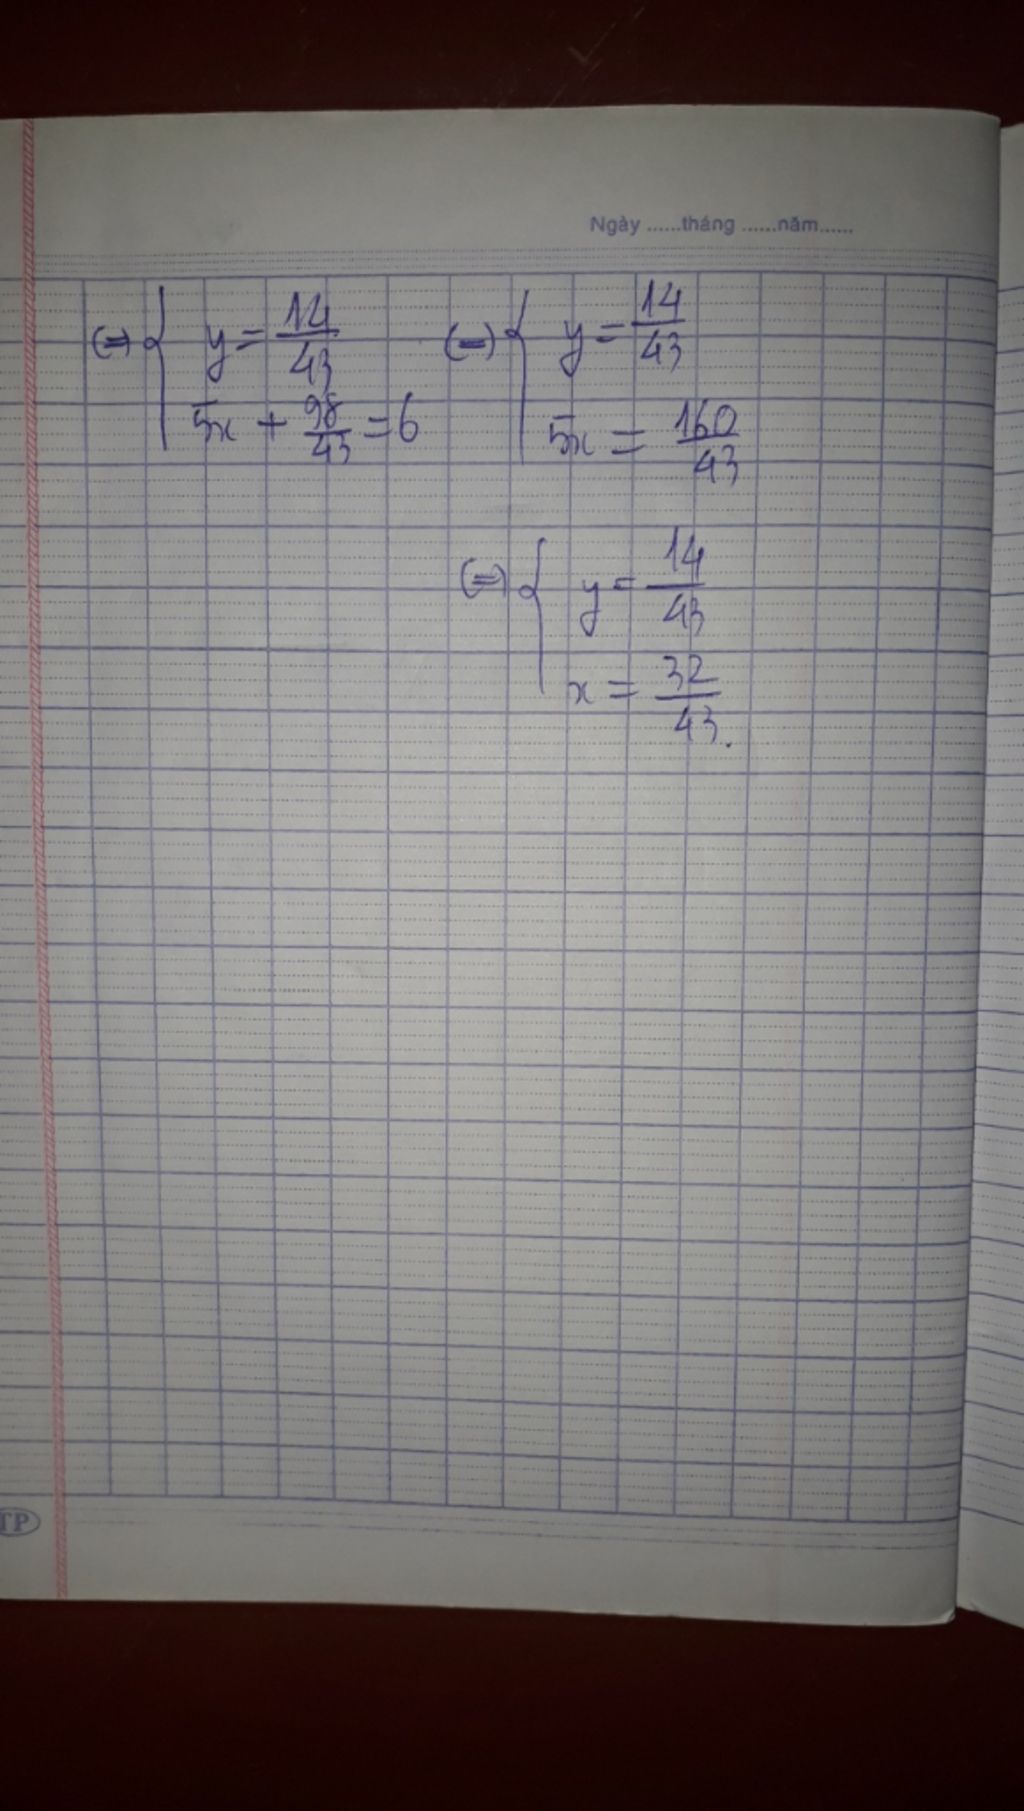 Ngày ......tháng ......năm......
(=) { y = 14/43 (=) { y = 14/43
5x + 98/43 = 6 5x = 160/43
(=) { y = 14/43
x = 32/43.
TP